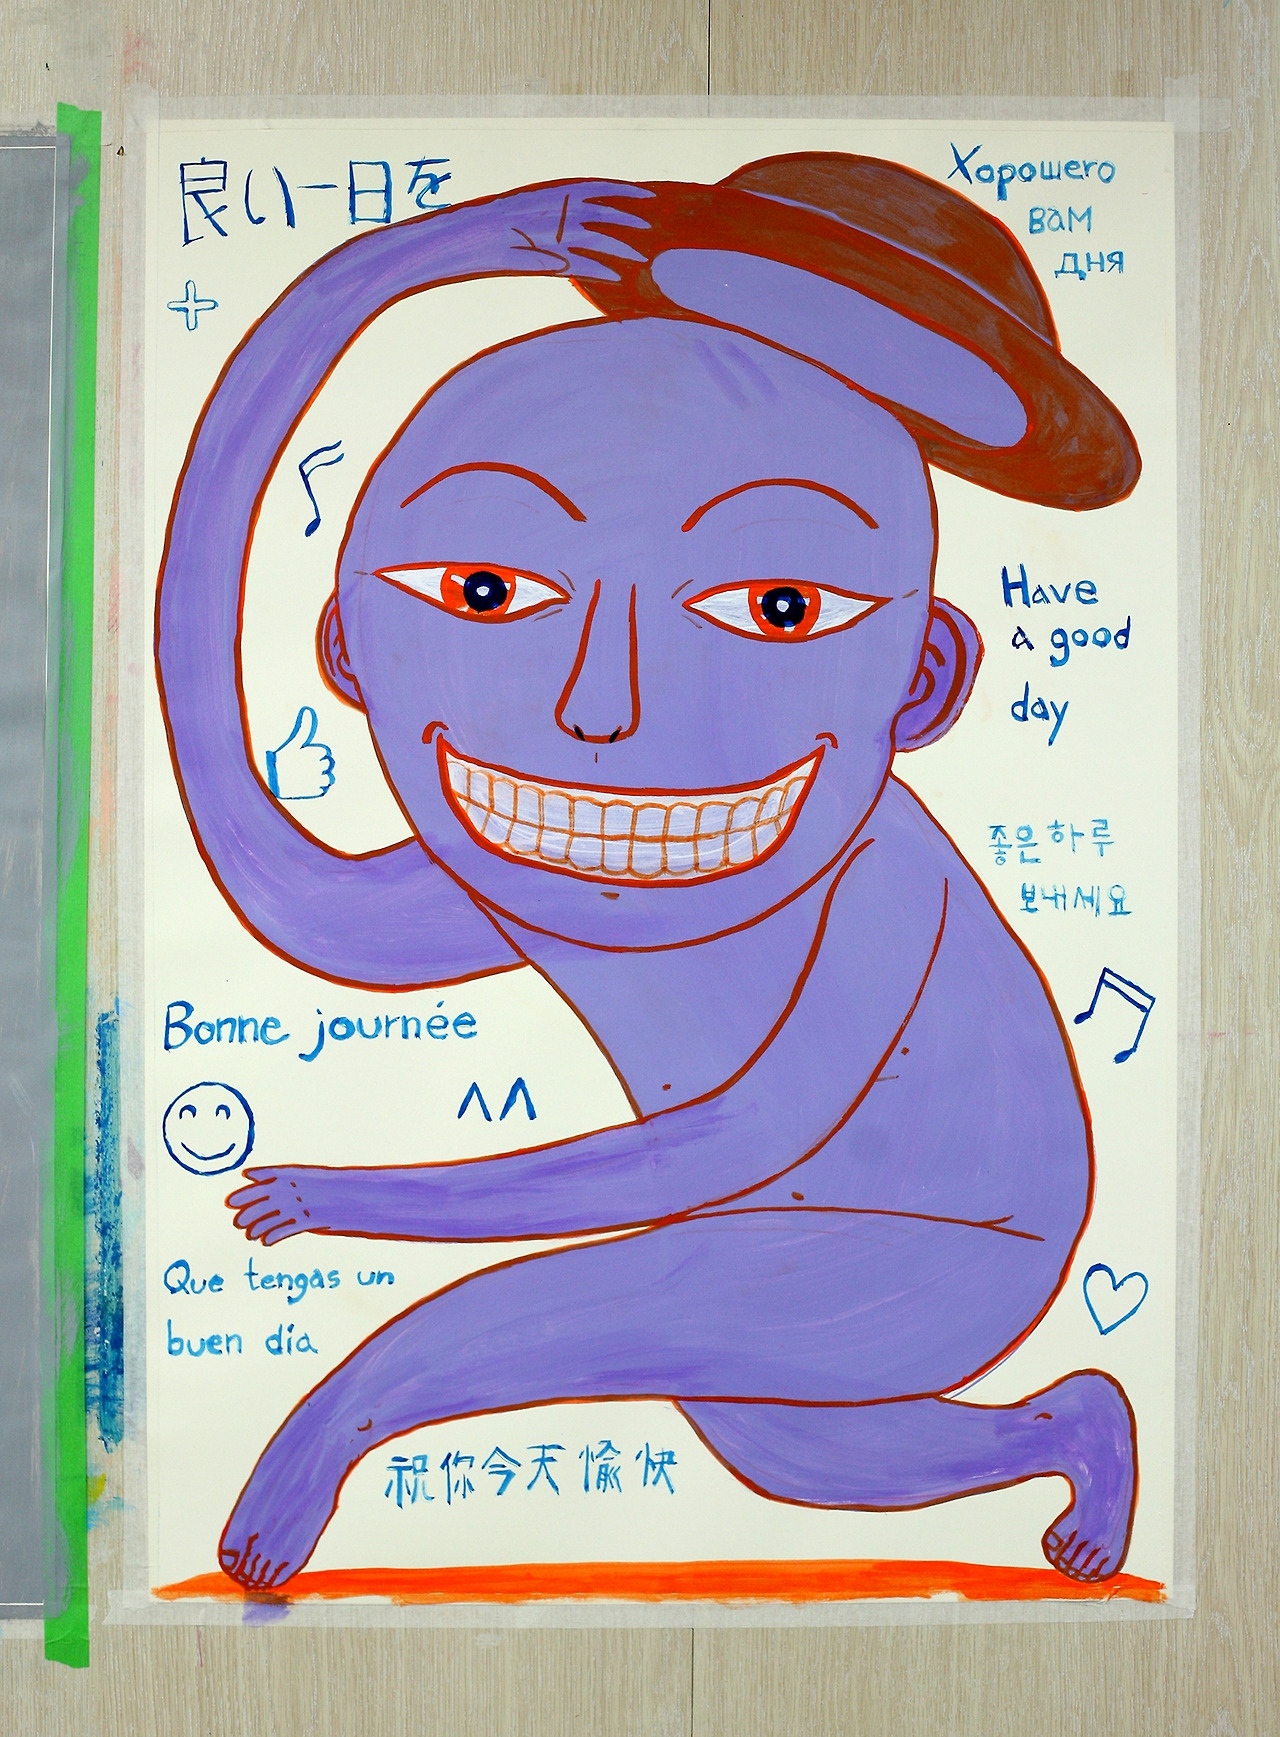 良い一日を
Хорошего
вам
дня
Have
a good
day
좋은 하루
보내세요
Bonne journée
^^
Que tengas un
buen día
祝你今天愉快